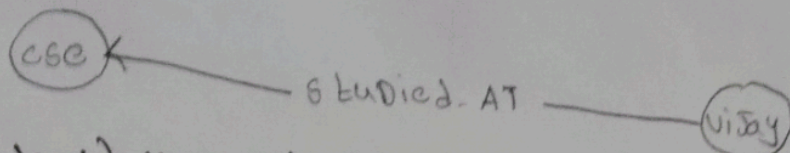 cse
studied_AT
vijay